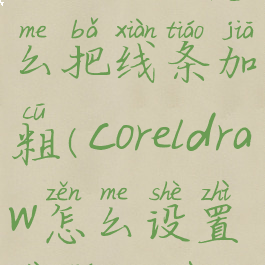 me bǎ xiàn tiáo jiā
么把线条加
cū
粗(coreldra
zěn me shè zhì
w怎么设置